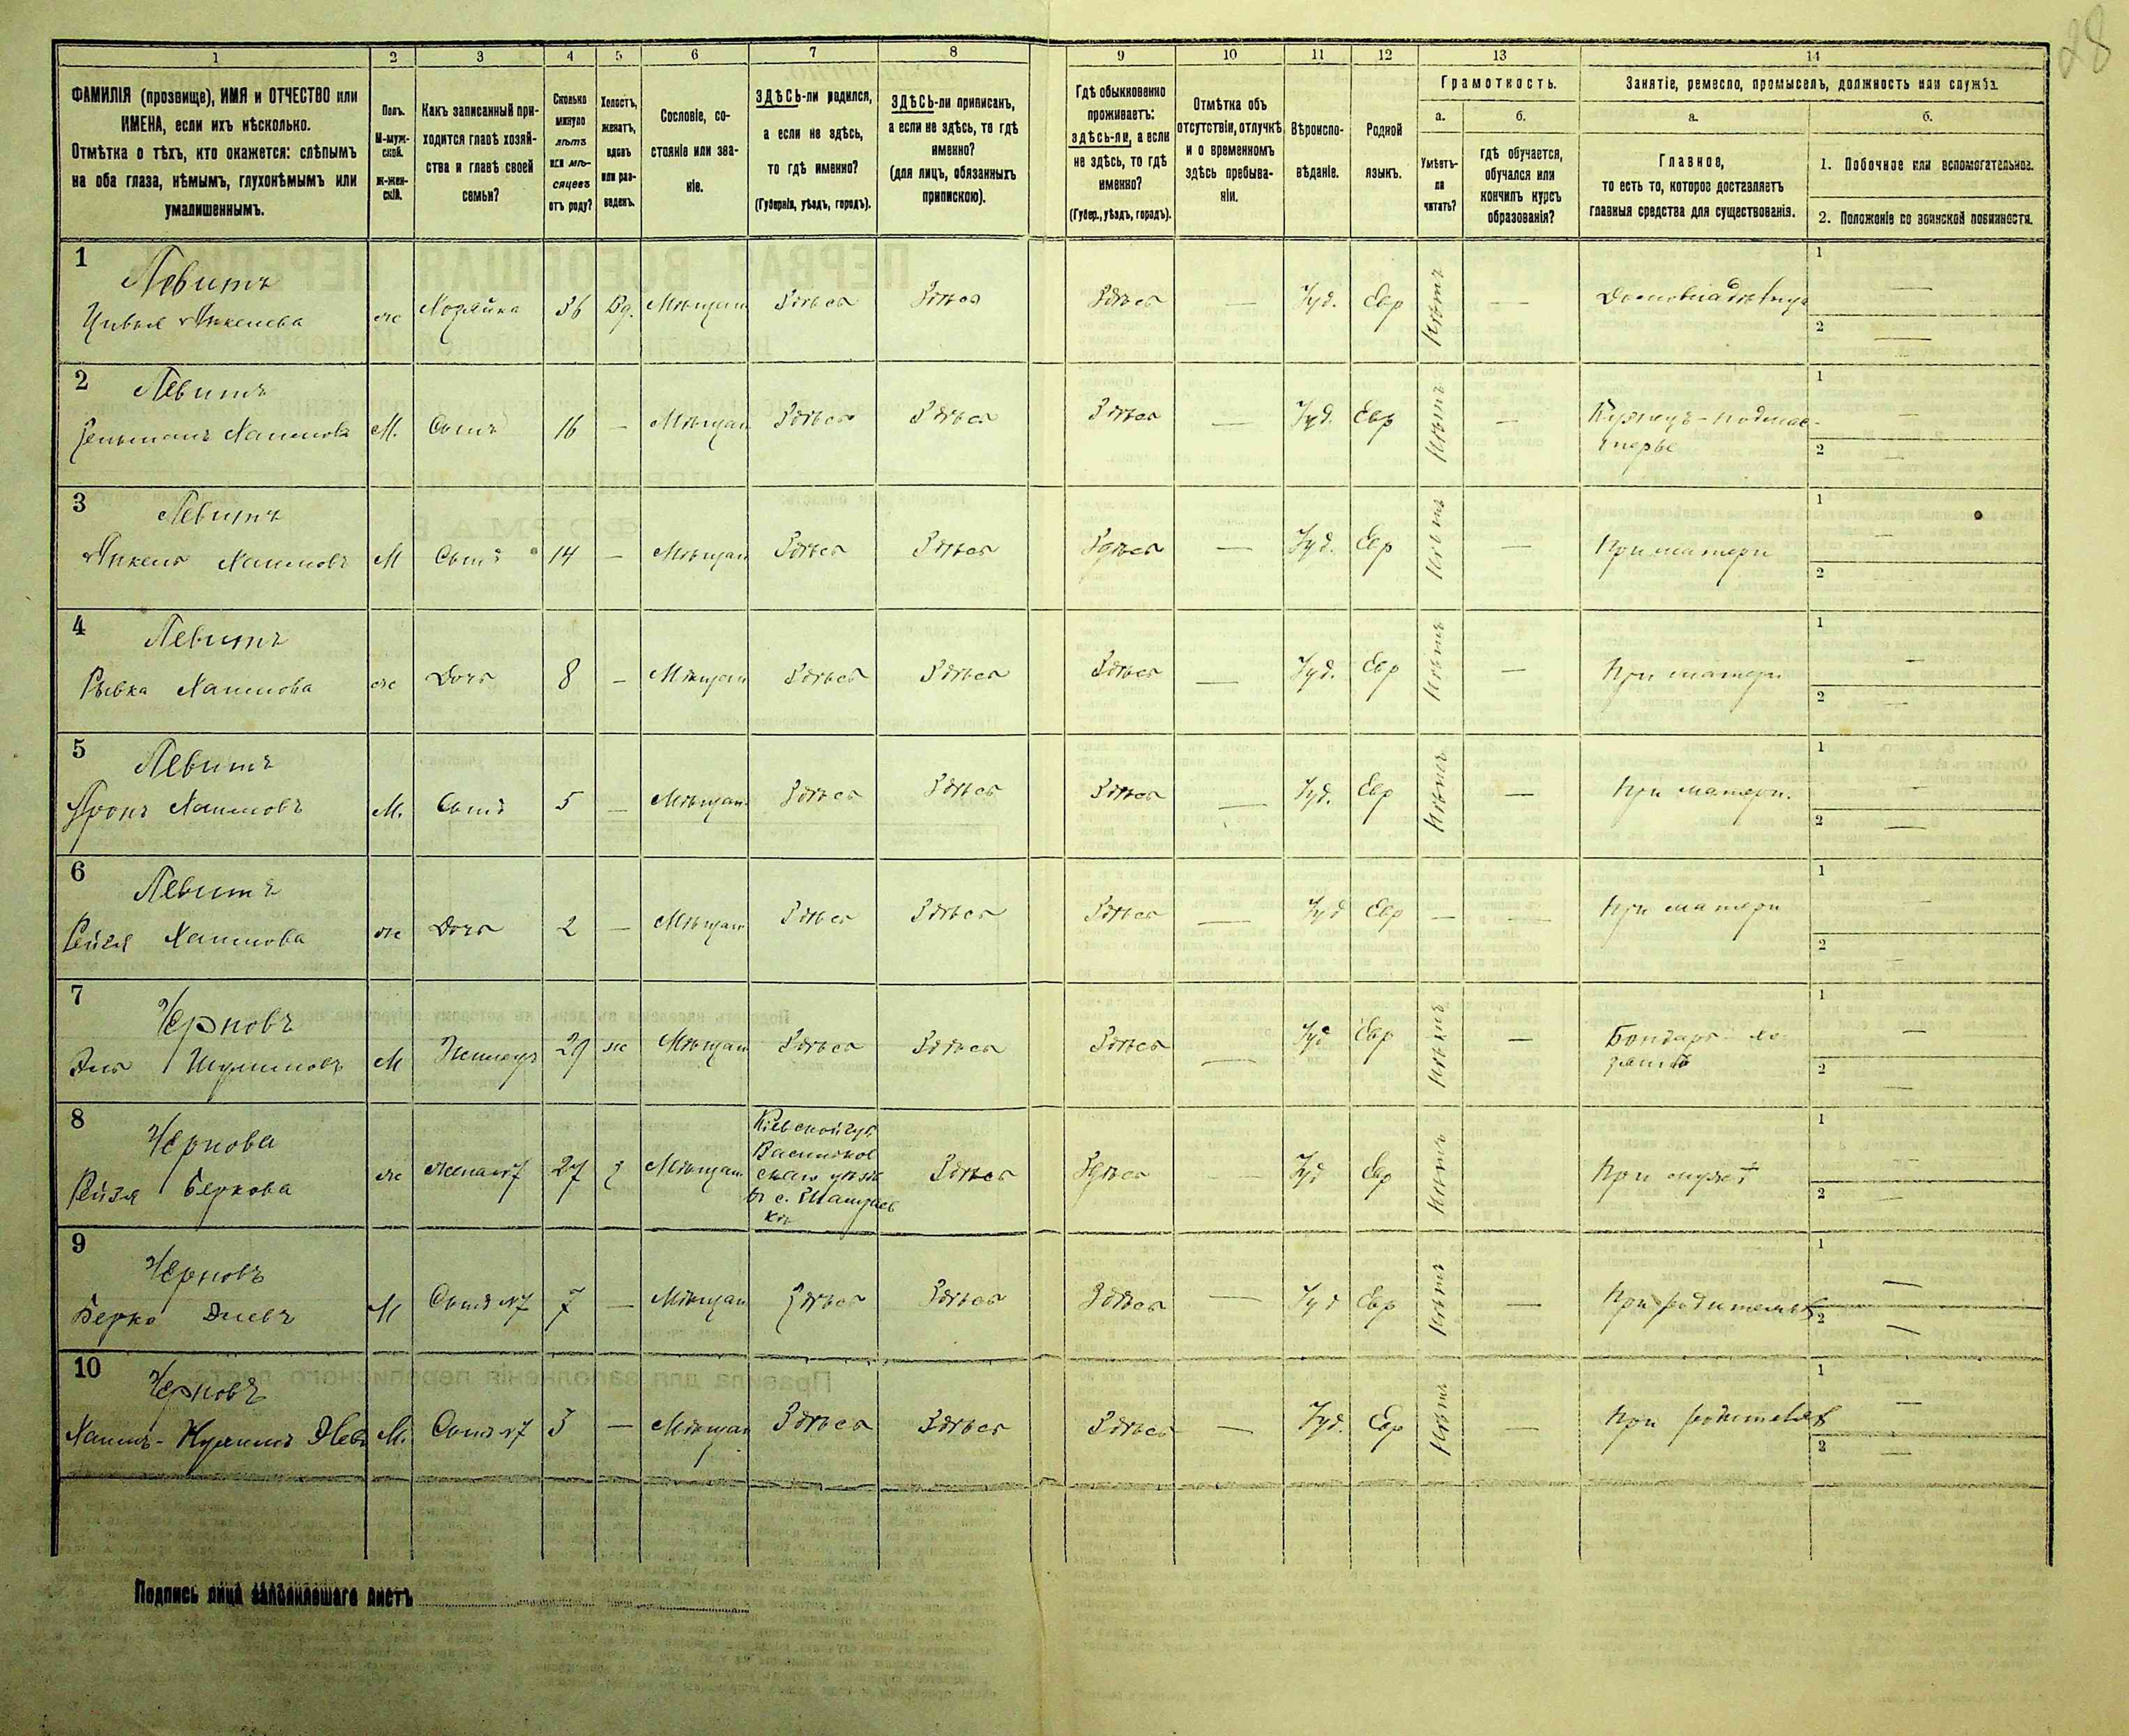 28
1 2 3 4 5 6 7 8 9 10 11 12 13 14
ФАМИЛІЯ (прозвище), ИМЯ и ОТЧЕСТВО или
ИМЕНА, если ихъ нѣсколько.
Отмѣтка о тѣхъ, кто окажется: слѣпымъ
на оба глаза, нѣмымъ, глухонѣмымъ или
умалишеннымъ.
Полъ.
М-муж-
ской.
Ж-жен-
скій.
Какъ записанный при-
ходится главѣ хозяй-
ства и главѣ своей
семьи?
Сколько
минуло
лѣтъ
или мѣ-
сяцевъ
отъ роду?
Холостъ,
женатъ,
вдовъ
или раз-
веденъ.
Сословіе, со-
стояніе или зва-
ніе.
ЗДѢСЬ-ли родился,
а если не здѣсь,
то гдѣ именно?
(Губернія, уѣздъ, городъ).
ЗДѢСЬ-ли приписанъ,
а если не здѣсь, то гдѣ
именно?
(для лицъ, обязанныхъ
припискою).
Гдѣ обыкновенно
проживаетъ:
здѣсь-ли, а если
не здѣсь, то гдѣ
именно?
(Губер., уѣздъ, городъ).
Отмѣтка объ
отсутствіи, отлучкѣ
и о временномъ
здѣсь пребыва-
ніи.
Вѣроиспо-
вѣданіе.
Родной
языкъ.
Грамотность.
а.
Умѣетъ-
ли
читать?
б.
гдѣ обучается,
обучался или
кончилъ курсъ
образованія?
Занятіе, ремесло, промыселъ, должность или служба.
а.
Главное,
то есть то, которое доставляетъ
главныя средства для существованія.
б.
1. Побочное или вспомогательное.
2. Положеніе по воинской повинности.
1 Левитъ
Цивья Янкелева ж Хозяйка 36 Вд. Мѣщан Здѣсь Здѣсь Здѣсь — Іуд. Евр Нѣтъ — Домовладѣлица 1 — 2 —
2 Левитъ
Хаимовъ М. Сынъ 16 — Мѣщан Здѣсь Здѣсь Здѣсь — Іуд. Евр Нѣтъ — Кузнецъ - подмас-
терье 1 — 2 —
3 Левитъ
Янкель Хаимовъ М Сынъ 14 — Мѣщан Здѣсь Здѣсь Здѣсь — Іуд. Евр Нѣтъ — При матери 1 — 2 —
4 Левитъ
Рывка Хаимова ж Дочь 8 — Мѣщан Здѣсь Здѣсь Здѣсь — Іуд. Евр Нѣтъ — При матери 1 — 2 —
5 Левитъ
Аронъ Хаимовъ М. Сынъ 5 — Мѣщан Здѣсь Здѣсь Здѣсь — Іуд. Евр Нѣтъ — При матери. 1 — 2 —
6 Левитъ
Рейзя Хаимова ж Дочь 2 — Мѣщан Здѣсь Здѣсь Здѣсь — Іуд Евр — — При матери 1 — 2 —
7 Черновъ
Эль Шулимовъ М Жилецъ 29 ж Мѣщан Здѣсь Здѣсь Здѣсь — Іуд Евр Нѣтъ — Бондарь - хо-
зяинъ 1 — 2 —
8 Чернова
Рейзя Беркова ж жена №7 27 з Мѣщан Кіевской губ.
Васильков
скаго уѣзд
въ с. Здѣсь Здѣсь — Іуд Евр Нѣтъ При мужѣ 1 — 2 —
9 Черновъ
Берко Элевъ М Сынъ №7 7 — Мѣщан Здѣсь Здѣсь Здѣсь — Іуд Евр Нѣтъ — При родителяхъ 1 — 2 —
10 Черновъ
Хаимъ - Нухимъ Элевъ М. Сынъ №7 3 — Мѣщан Здѣсь Здѣсь Здѣсь — Іуд. Евр Нѣтъ — При родителяхъ 1 — 2 —
Подпись лица заполнявшаго листъ